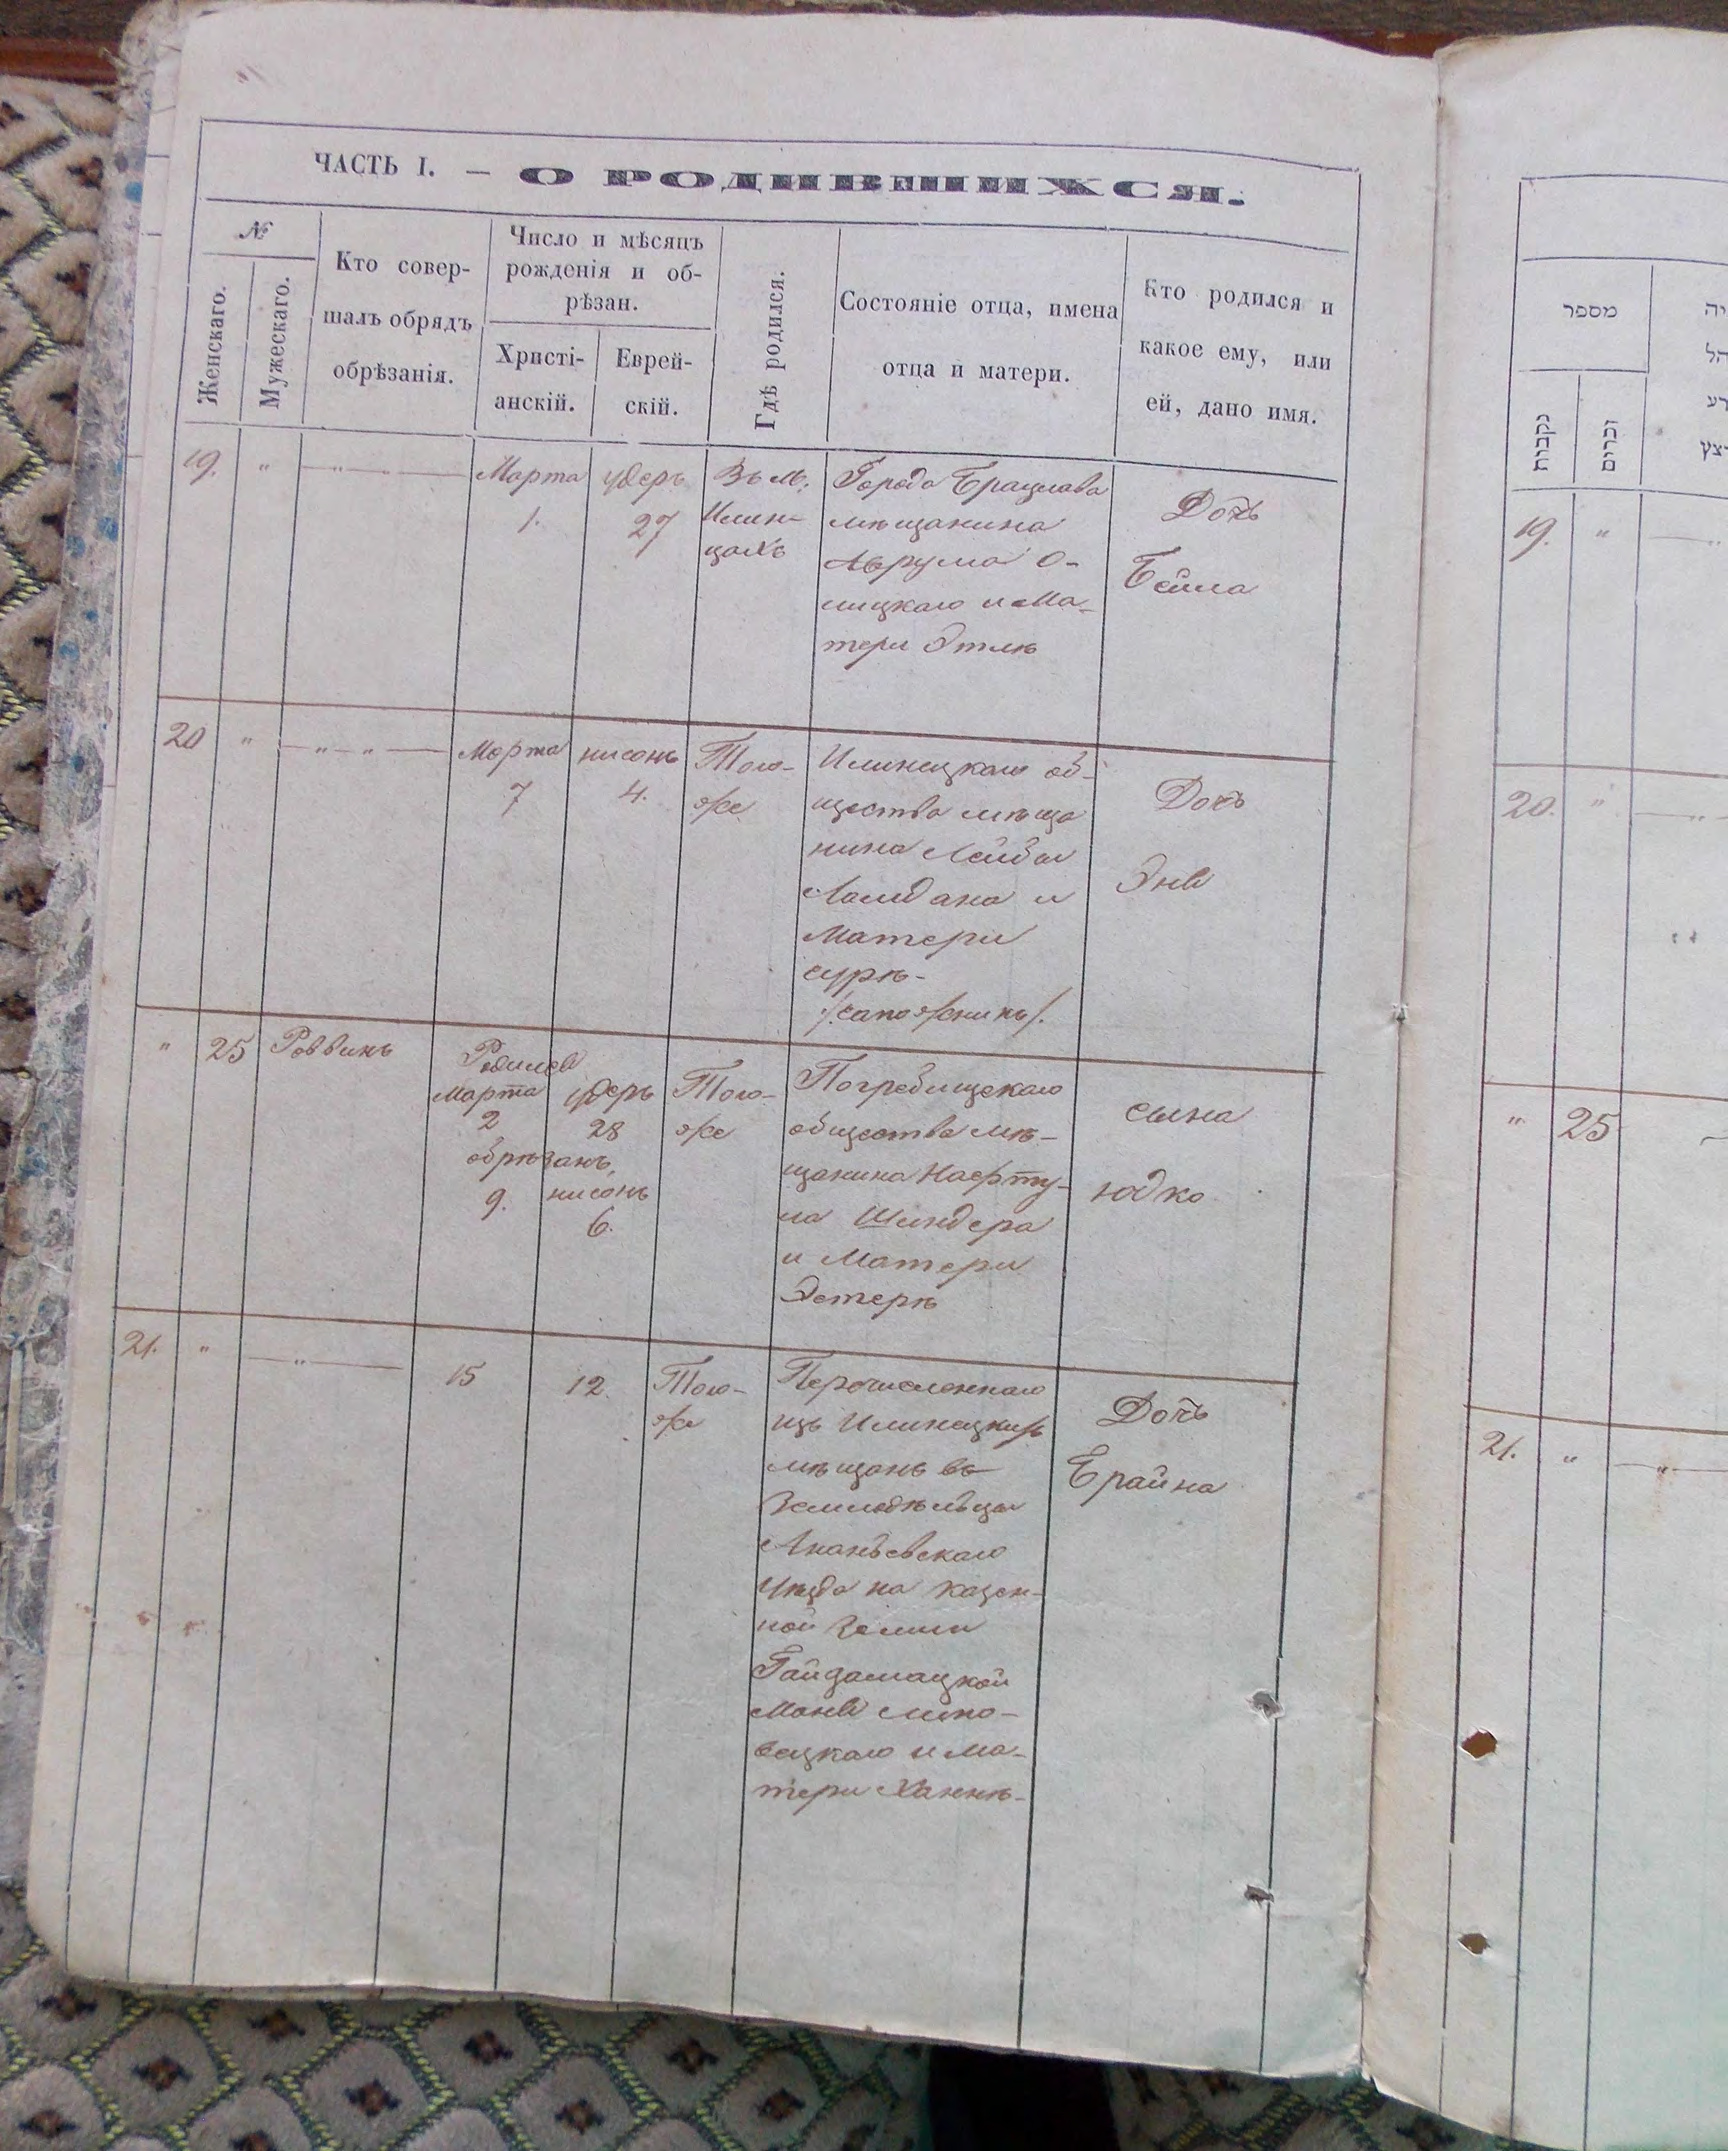 ЧАСТЬ I. — О РОДИВШИХСЯ.
№
Женскаго.
Мужескаго.
Кто совер-
шалъ обрядъ
обрѣзанія.
Число и мѣсяцъ
рожденія и об-
рѣзан.
Христі-
анскій.
Еврей-
скій.
Гдѣ родился.
Состояніе отца, имена
отца и матери.
Кто родился и
какое ему, или
ей, дано имя.
19. " —"—"—
Марта
1.
удеръ
27
Въ м.
Илин-
цахъ
Города Брацлава
мѣщанина
Аврума О-
лицкаго и ма-
тери Этлѣ
Дочь
Бейла
20 " —"—"—
Марта
7
нисонь
4.
Того-
же
Илинецкаго об-
щества мѣща
нина Лейбы
Ламдана и
Матери
сурѣ-
/:сапожникъ/.
Дочь
Эня
" 25 Раввинъ
Родился
Марта
2
удеръ
28
обрѣзанъ,
9.
нисонь
6.
Того-
же
Погребищскаго
общества мѣ-
щанина Нафту-
ла Шиндера
и Матери
Эстерѣ
сына
юдко
21. " —"—
15
12.
Того-
же
Перечисленнаго
изъ Илинецкихъ
мѣщанъ въ
Земледѣльцы
Ананьевскаго
Уѣзда на казен-
ной Земли
Гайдамацкой
Маня липо-
вецкаго и ма-
тери Ханнѣ-
Дочь
Брайна
מספר
נקבות
זכרים
19. "
20. "
" 25
21. "